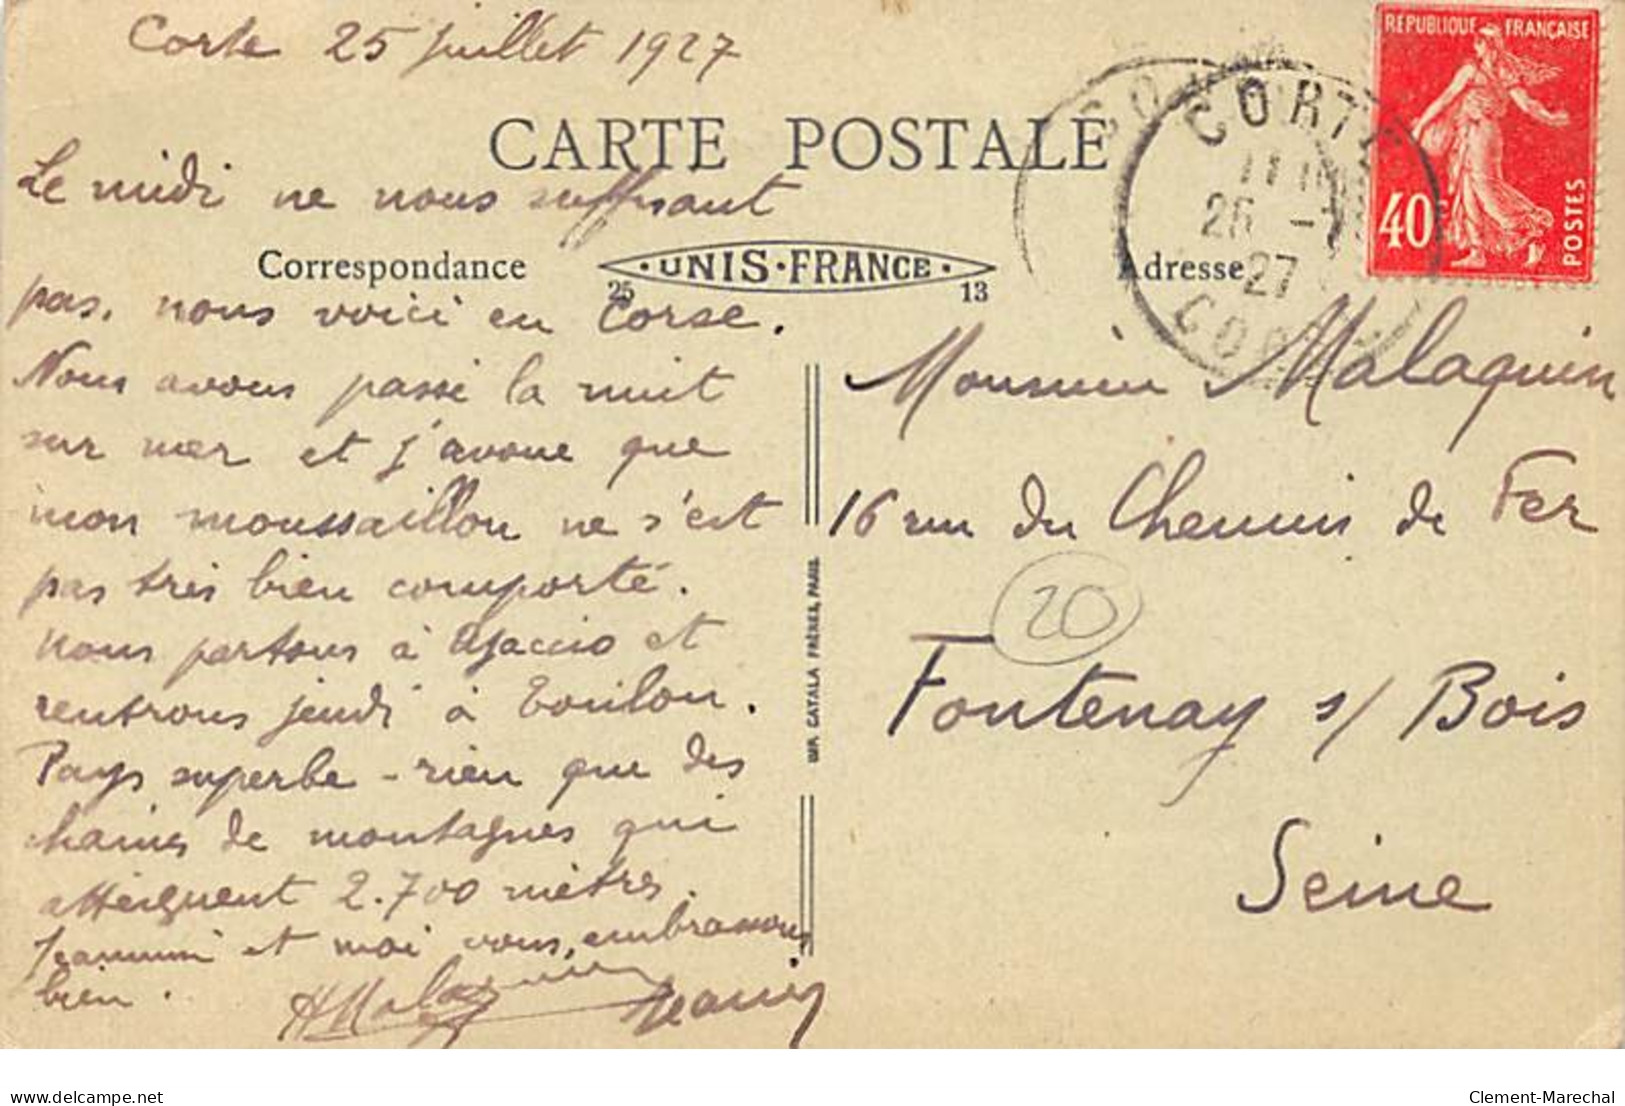 Corte 25 juillet 1927
CARTE POSTALE
Le midi ne nous suffisant
Correspondance
UNIS·FRANCE
25 13
Adresse
pas, nous voici en Corse.
Nous avons passé la nuit
sur mer et j'avoue que
mon moussaillon ne s'est
pas très bien comporté.
Nous partons à Ajaccio et
rentrons jeudi à Toulon.
Pays superbe - rien que des
chaines de montagnes qui
atteignent 2.700 mètres.
et moi vous embrassons
bien.
HMalaquin
RÉPUBLIQUE FRANÇAISE
40c
POSTES
CORTE
26 -7
27
CORSE
Monsieur Malaquin
16 rue du Chemin de Fer
20
Fontenay s/ Bois
Seine
IMP. CATALA FRÈRES, PARIS.
delcampe.net
Clement-Marechal